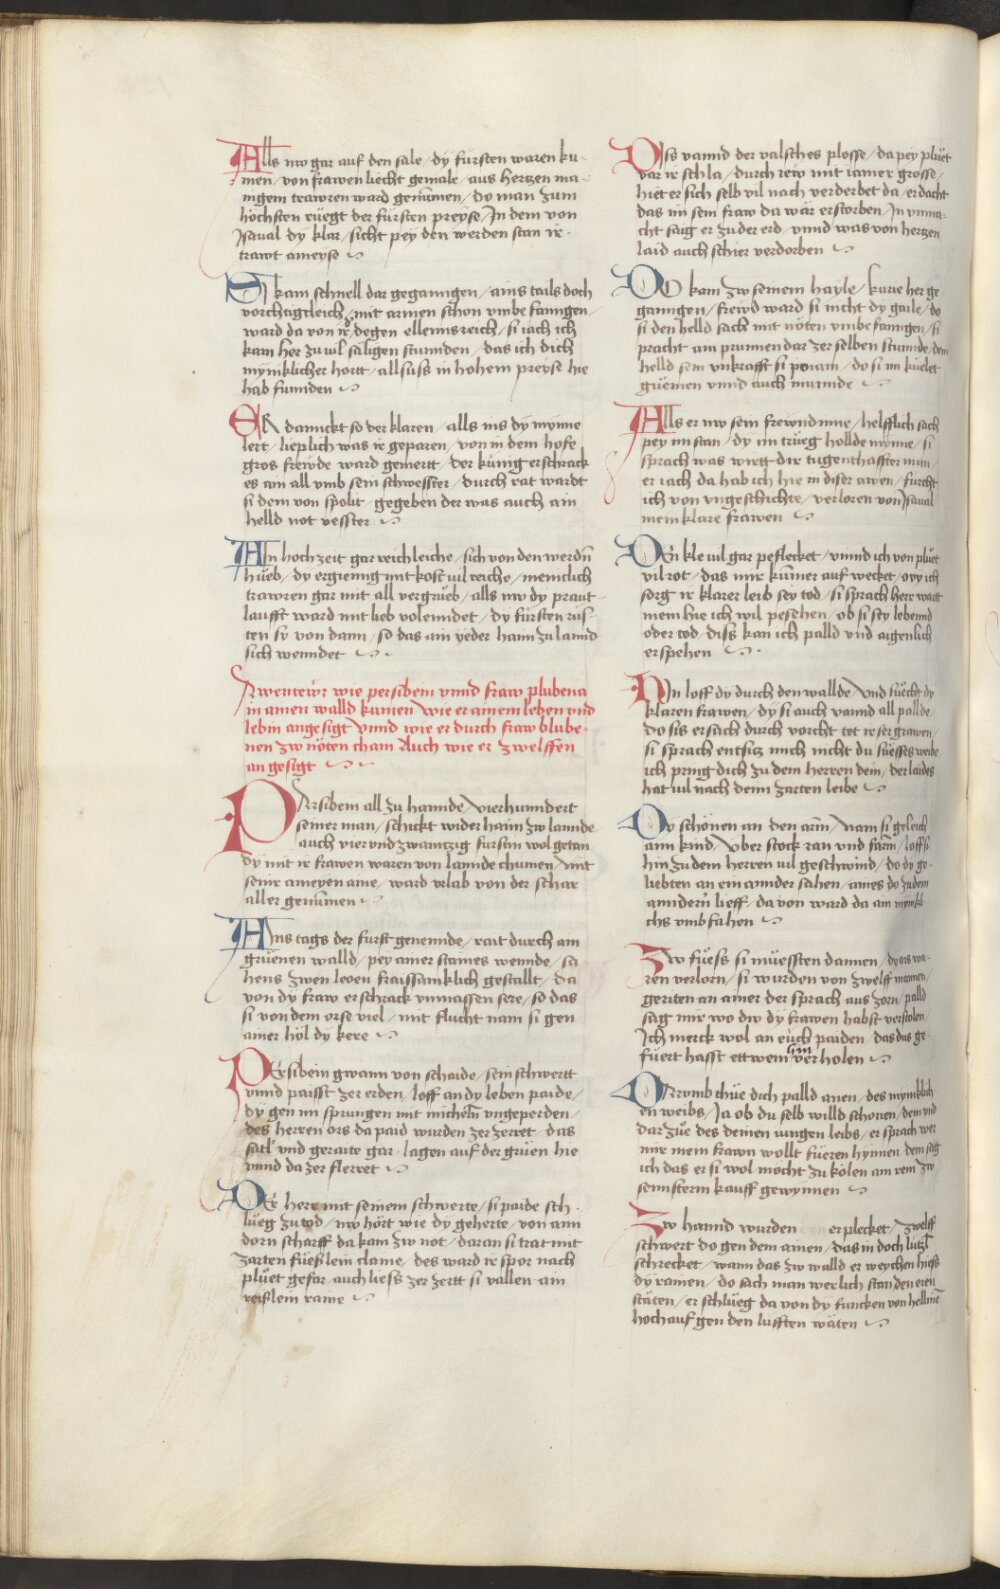 Alls nw gar auf den sale / dy fürsten waren ku-
men / von frawen liecht gemale / aus hertzen ma-
nigem trawren ward genumen / do man zum
höchsten rüegt der fürsten preyse / In dem von
Isaual dy klar / sicht pey den werden stan ir
trawt ameyse
SI kam schnell dar geganngen / ains tails doch
vorchtigkleich / mit armen schon vmbefanngen
ward da von ir degen ellennsreich / si iach ich
kam her zu vil säligen stunnden / das ich dich
mynniklicher hortt / allsuss in hohem preyse hie
hab funnden
ER dannckt so der klaren / alls ins dy mynne
lert / lieplich was ir geparen / von in dem hofe
gros frewde ward gemertt / der künig erschrack
es am all vmb sein schwesster / durch rat wardt
si dem von spolit / gegeben der was auch ain
helld not vesster
AIn hochzeit gar reichleiche / sich von den werdn̄
hueb / dy ergieng mit kost vil reiche / menniclich
trawren gar mit all vergrueb / alls nw dy praut
laufft ward mit lieb volenndet / dy fürsten rüs-
ten sy von dann / so das ain yeder haim zu lannd
sich wenndet
Awentewr wie persibein vnnd fraw plubena
in ainen walld kamen wie er ainem leben vnd
lebin angesigt vnnd wie er durch fraw blube
nen zw nöten cham Auch wie er zwelffen
an gesigt
PErsibein all zu hannde / vierhunndert
seiner man / schickt wider haim zw lannde
auch vier vnd zwantzig fürstin wol getan
dy mit ir frawen waren von lannde chumen / mit
seinr ameyen ame / ward vrlab von der schar
aller genumen
AIns tags der fürst genennde / rait durch ain
grüenen walld / pey ainer staines wennde / sa-
hens zwen leoen fraissamklich gestallt / da
von dy fraw erschrack vnmassen sere / so das
si von dem orse viel / mit flucht nam si gen
ainer höl dy kere
PErsibein gwann von schaide / sein schwertt
vnnd paisst zer erden / loff an dy leben paide /
dy gen im sprungen mit micheln̄ vngeperden /
des herren ors da paid wurden zer zerret / das
satl vnd geraite gar / lagen auf der grüen hie
vnnd da zer flerret
DEr herr mit seinem schwerte / si paide sch-
lueg zu tod / nw hört wie dy geherte / von ainn
dorn scharff da kam zw not / daran si trat mit
zarten füeßlein claine / des ward ir spor nach
pluet gefar / auch liess zer zertt si vallen am
reißlein raine
DIss vannd der valsches plosse / da pey pluet
var ir schla / durch rew mit iamer grosse /
hiet er sich selb vil nach verderbet da / er dacht
das im sein fraw da wär erstorben / In vnma-
cht saig er zu der erd / vnnd was von hertzen
laid auch schier verdorben
DO kam zw seinem hayle / kurie her ge
ganngen / frewd ward si nicht dy gaile / do
si den helld sach mit nöten vmbefanngen / si
pracht am prunnen dar zer selben stunnde / dem
helld sein vnkrafft si ponam / do si im kuelet
guemen vnnd auch munnde
Alls er nw sein frewndinne / helfflich sach
pey im stan / dy im trueg hollde mynne / si
sprach was wirtt dir tugenthaffter man
er iach da hab ich hie in diser awen / furcht
ich von vngeschichte / verloren von Isaual
mein klare frawen
DEn kle vil gar peflecket / vnnd ich von pluet
vil rot / das mir kumer auf wecket / owy ich
sorg ir klarer leib sey tod / si sprach herr wartt
mein hie ich wil pesehen / ob si sey lebennd
oder tod / diss kan ich palld vnd aigenlich
erspehen
NUn loff dy durch den wallde / vnd suecht dy
klaren frawen / dy si auch vannd all pallde
do sis ersach durch vorcht tet ir ser grawen
si sprach entsitz mich nicht du süesses weibe
ich pring dich zu dem herren dein / der laides
hat vil nach deinn zarten leibe
DY schönen an den arm̄ / nam si geleich
ainn kind / vber stock ran vnd farm̄ / loff si
hin zu dem herren vil geschwind / do dy ge-
liebten an ein annder sahen / aines do zu dem
anndern̄ lieff / da von ward da ain mynikli
chs vmbfahen
Zw fuess si muessten dannen / dy ors wa-
ren verlorn / si wurden von zwelff mannen
geriten an ainer der sprach aus zorn / palld
sag mir wo dw dy frawen habst verstolen
Ich merck wol an euch paiden / das das ge-
füert hasst ettwem hin ver holen
DArumb thue dich palld anen / des mynniklich
en weibs / Ja ob du selb willd schonen / dem vnd
dar zue des deinen iungen leibs / er sprach wer
mir mein frawn wollt füeren hynnen / dem sag
ich das er si wol möcht zu kölen am rein zw
sennfterm kauff gewynnen
Zw hannd wurden er plecket / zwelff
schwert do gen dem ainen / das in doch lützl
schrecket / wann das zw walld er weychen hiess
dy rainen / do sach man werlich stan den eren
stäten / er schlueg da von dy funcken von hellmē
hoch auf gen den lufften wäten